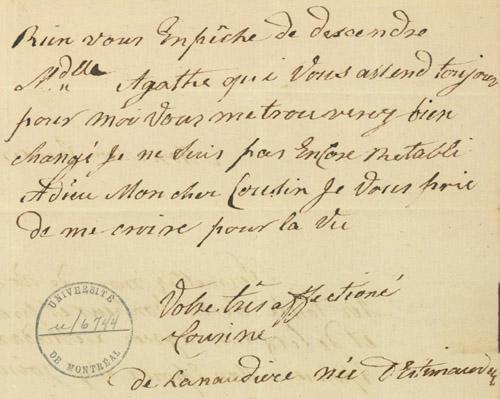 Rien vous Enpêche de descendre
Mdlle Agathe qui Vous attend toujours
pour moi Vous me trouverez bien
changé Je ne Suis pas Encore Retabli
Adieu Mon cher Cousin Je Vous prie
de me croire pour la Vie
Votre très affectioné
Cousine
de Lanaudiere née
UNIVERSITÉ
u/6744
DE MONTRÉAL